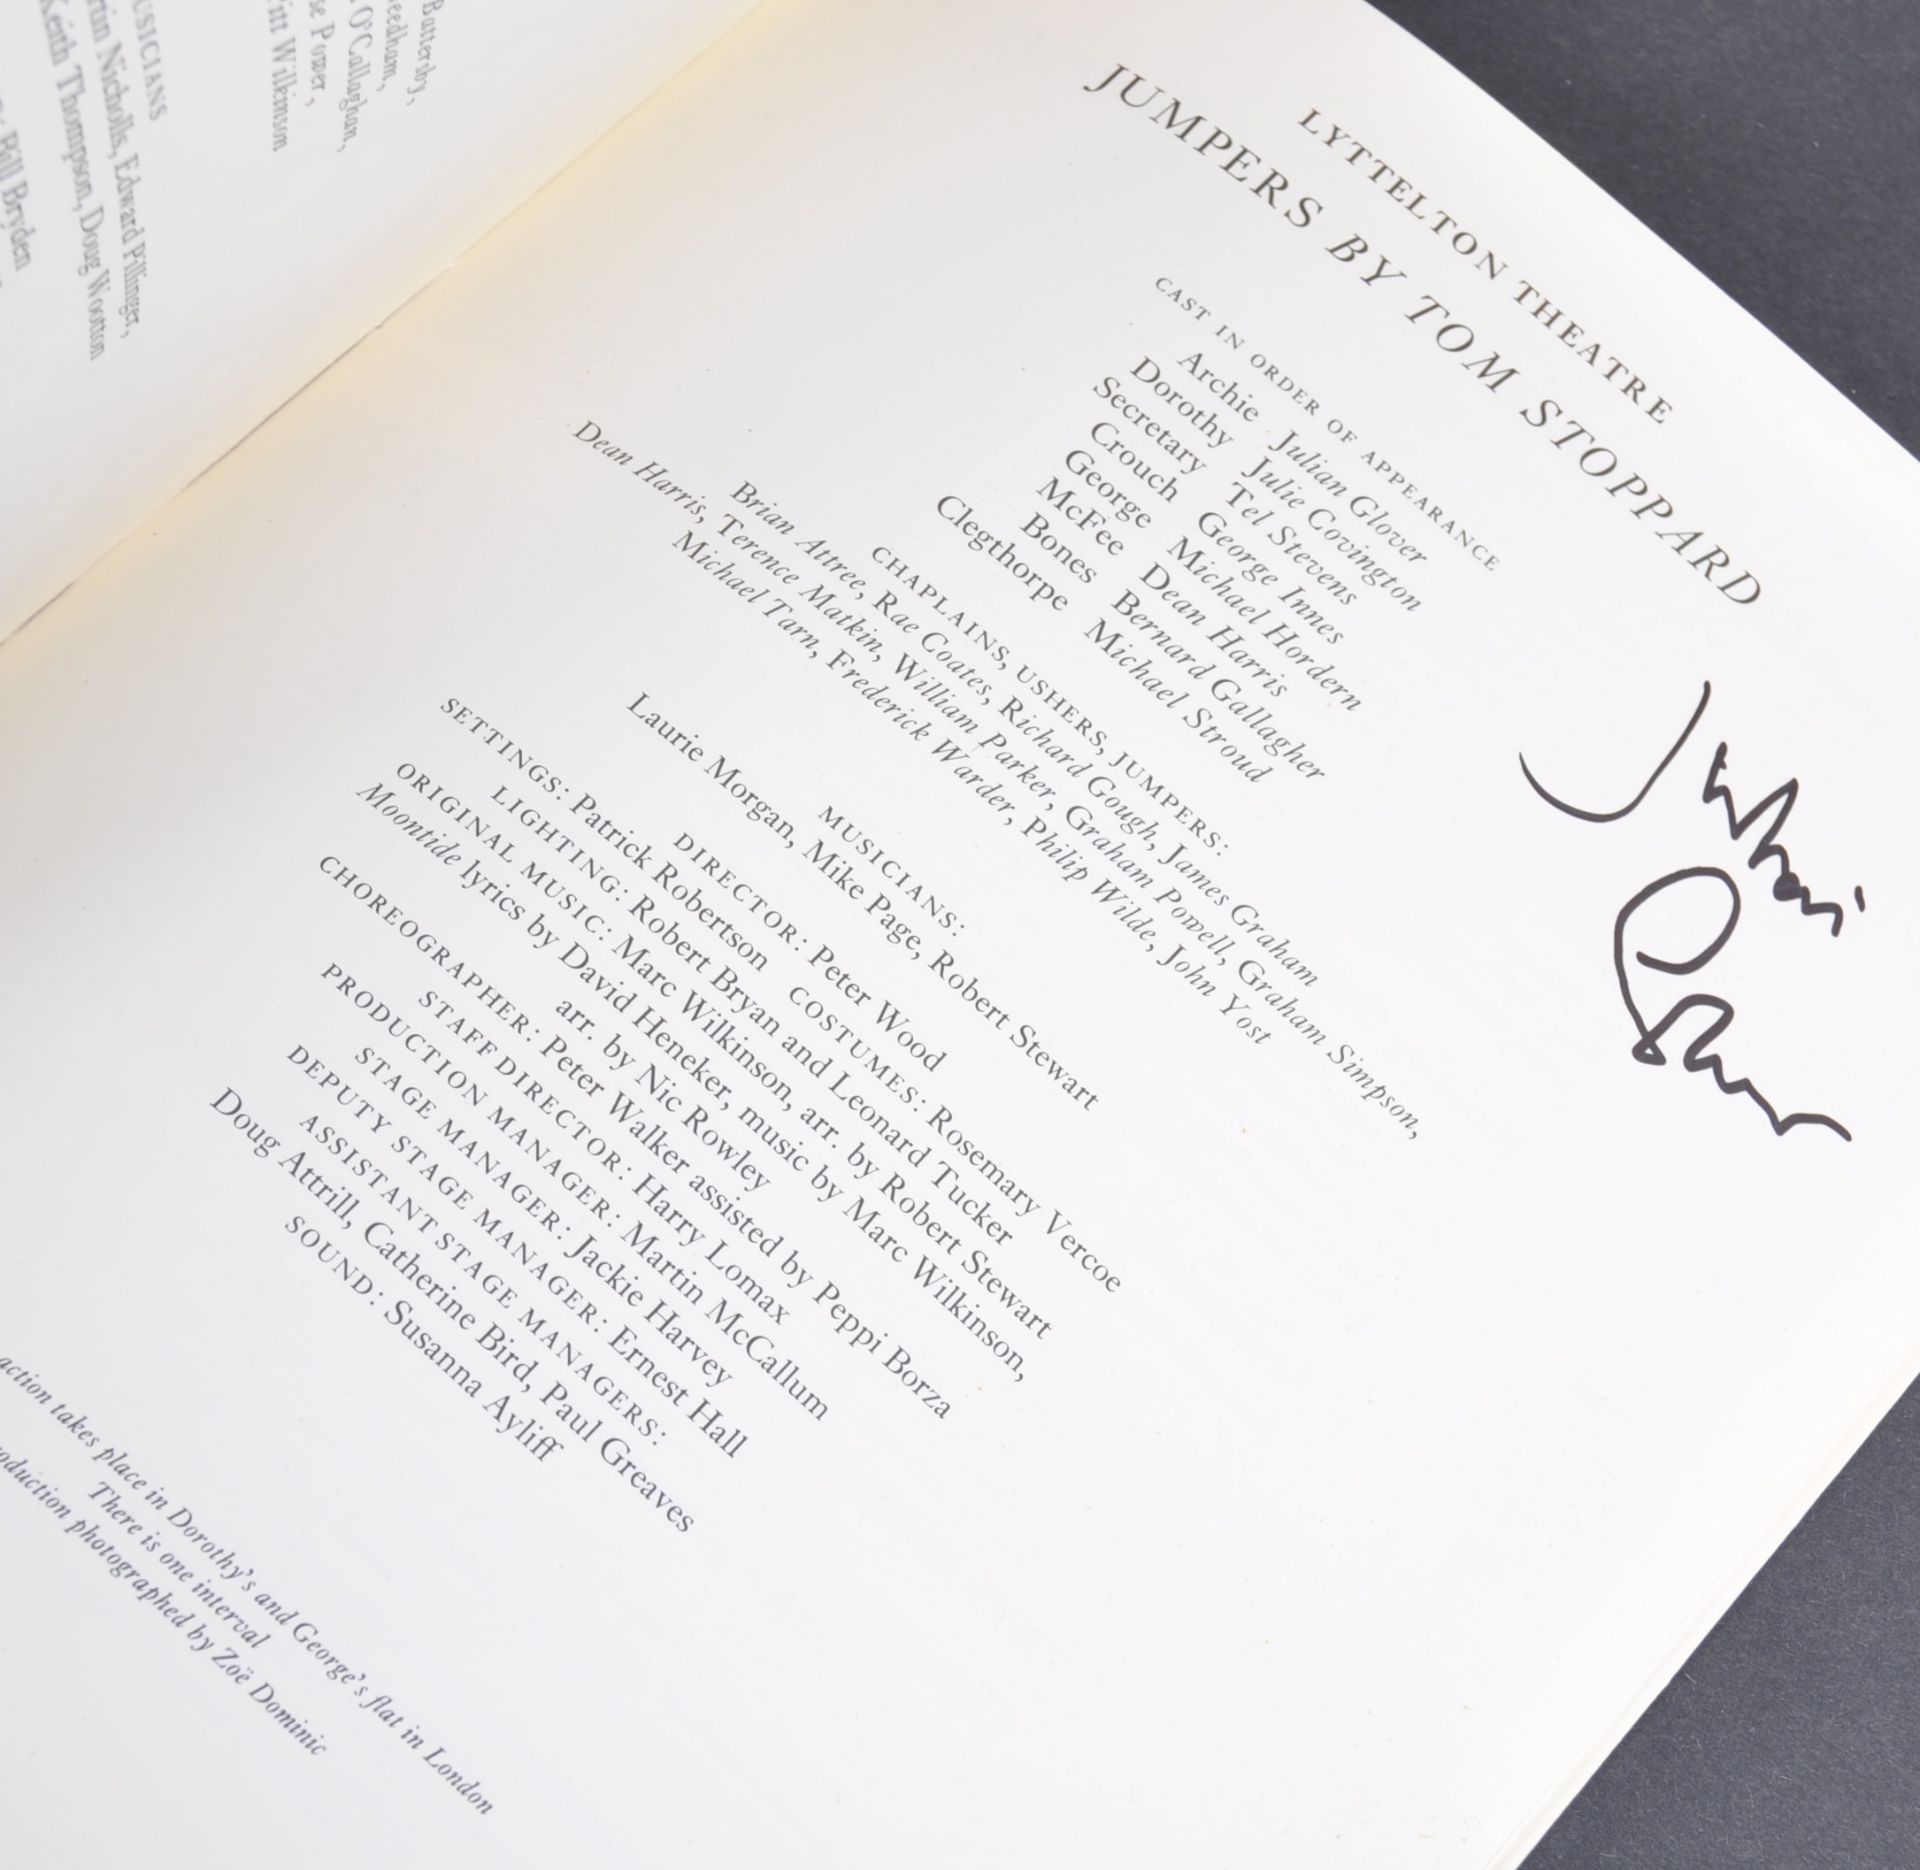 Battersby,
eedham,
O'Callaghan,
se Power,
itt Wilkinson
USICIANS
rtin Nicholls, Edward Pillinger,
Keith Thompson, Doug Wootton
Bill Bryden
LYTTELTON THEATRE
JUMPERS BY TOM STOPPARD
CAST IN ORDER OF APPEARANCE
Archie Julian Glover
Dorothy Julie Covington
Secretary Tel Stevens
Crouch George Innes
George Michael Hordern
McFee Dean Harris
Bones Bernard Gallagher
Clegthorpe Michael Stroud
CHAPLAINS, USHERS, JUMPERS:
Brian Attree, Rae Coates, Richard Gough, James Graham
Dean Harris, Terence Matkin, William Parker, Graham Powell, Graham Simpson,
Michael Tarn, Frederick Warder, Philip Wilde, John Yost
MUSICIANS:
Laurie Morgan, Mike Page, Robert Stewart
DIRECTOR: Peter Wood
SETTINGS: Patrick Robertson COSTUMES: Rosemary Vercoe
LIGHTING: Robert Bryan and Leonard Tucker
ORIGINAL MUSIC: Marc Wilkinson, arr. by Robert Stewart
Moontide lyrics by David Heneker, music by Marc Wilkinson,
arr. by Nic Rowley
CHOREOGRAPHER: Peter Walker assisted by Peppi Borza
STAFF DIRECTOR: Harry Lomax
PRODUCTION MANAGER: Martin McCallum
STAGE MANAGER: Jackie Harvey
DEPUTY STAGE MANAGER: Ernest Hall
ASSISTANT STAGE MANAGERS:
Doug Attrill, Catherine Bird, Paul Greaves
SOUND: Susanna Ayliff
action takes place in Dorothy's and George's flat in London
There is one interval
oduction photographed by Zoë Dominic
Julian
Glover